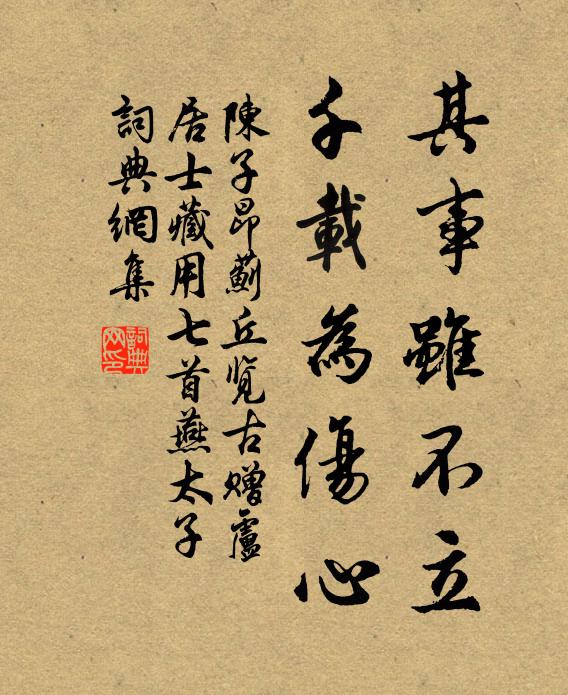 其事雖不立
千載為傷心
陳子昂薊丘览古赠盧
居士藏用七首燕太子
詞典網集
詞典网印